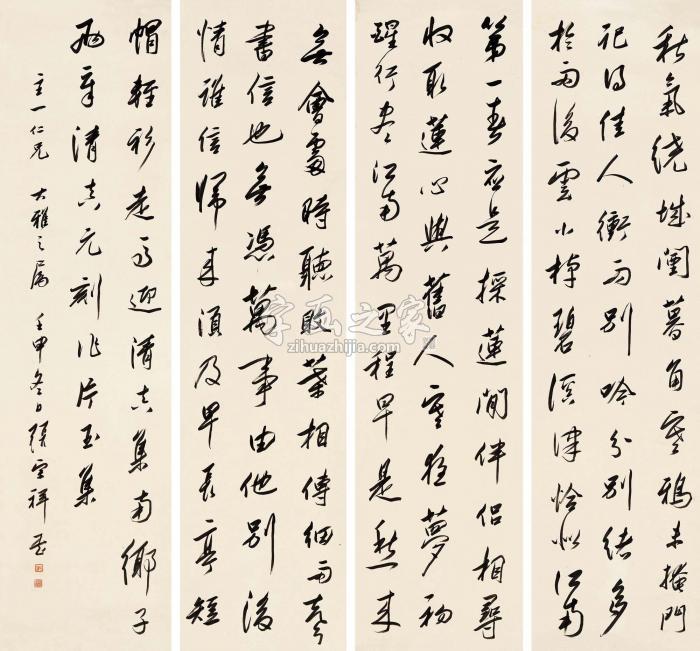 秋氣繞城闉暮角寒鴉未掩門
記得佳人衝雨別吟分別緒多
於雨後雲小棹碧溪津恰似江南
第一春應是採蓮閒伴侶相尋
收取蓮心與舊人寒夜夢初
醒行盡江南萬里程早是愁來
無會處時聽敗葉相傳細雨聲
書信也無憑萬事由他別後
情誰信歸來須及早長亭短
帽輕衫走馬迎清真集南鄉子
兩章清真元刻作片玉集
主一仁兄大雅之屬壬申冬日
字画之家
zihuazhijia.com